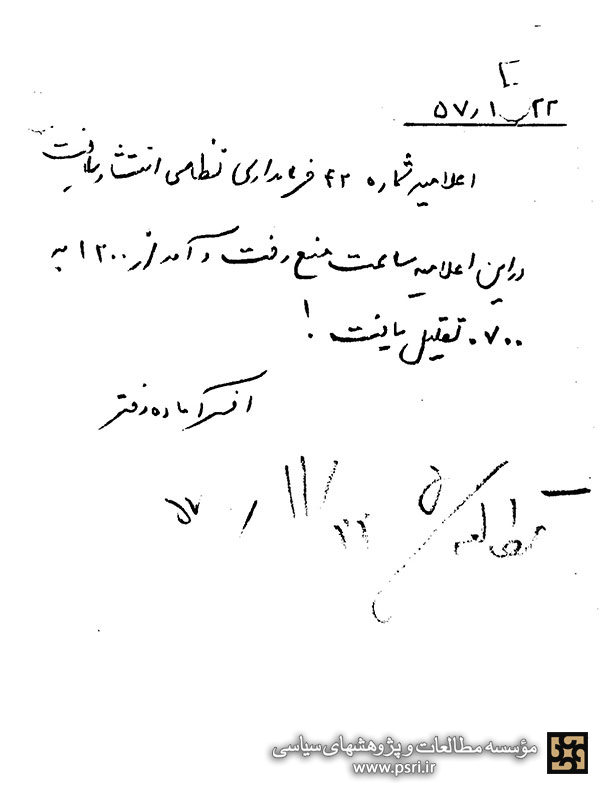 ۲۲ر۱۰ر۵۷
اعلامیه شماره ۴۲ فرمانداری نظامی انتشار یافت
در این اعلامیه ساعت منع رفت و آمد از ۱۲۰۰ به
۰۷۰۰ تقلیل یافت !
افسر آماده دفتر
۲۲ / ۱۱ / ۵۷
مؤسسه مطالعات و پژوهشهای سیاسی
www.psri.ir